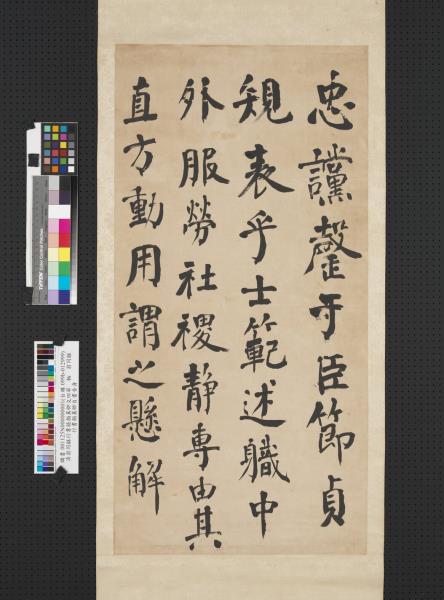 忠讜罄于臣節貞
規表乎士範述職中
外服勞社稷静專由其
直方動用謂之懸解